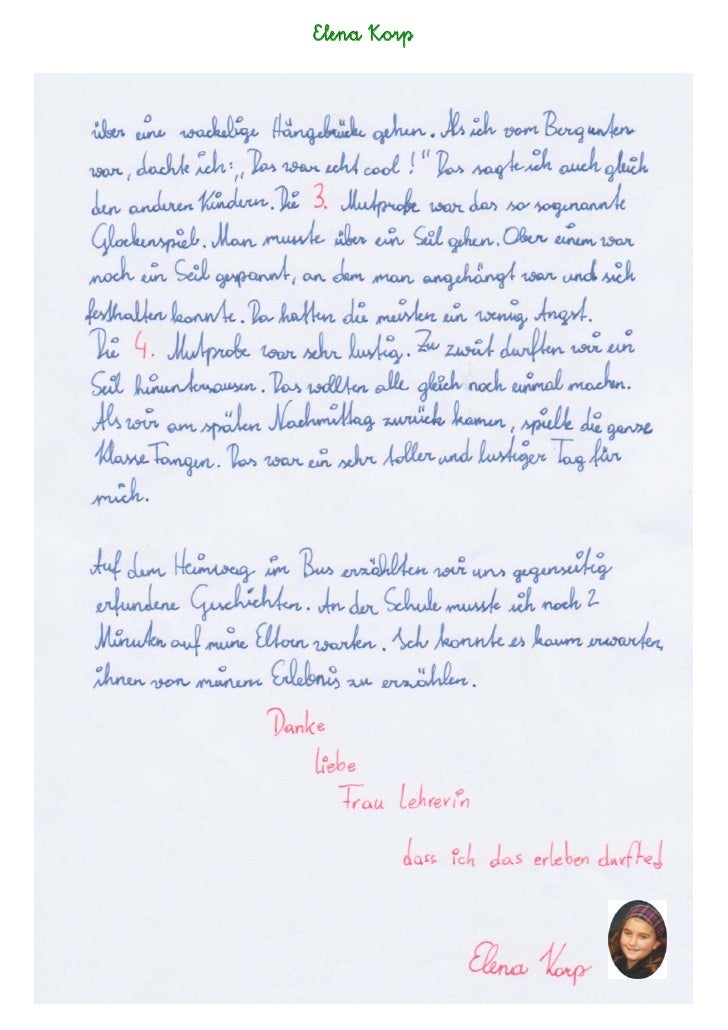 Elena Korp
über eine wackelige Hängebrücke gehen. Als ich vom Berg unten
war, dachte ich: „Das war echt cool!" Das sagte ich auch gleich
den anderen Kindern. Die 3. Mutprobe war das so sogenannte
Glockenspiel. Man musste über ein Seil gehen. Ober einem war
noch ein Seil gespannt, an dem man angehängt war und sich
festhalten konnte. Da hatten die meisten ein wenig Angst.
Die 4. Mutprobe war sehr lustig. Zu zweit durften wir ein
Seil hinuntersausen. Das wollten alle gleich noch einmal machen.
Als wir am späten Nachmittag zurück kamen, spielte die ganze
Klasse Fangen. Das war ein sehr toller und lustiger Tag für
mich.
Auf dem Heimweg im Bus erzählten wir uns gegenseitig
erfundene Geschichten. An der Schule musste ich noch 2
Minuten auf meine Eltern warten. Ich konnte es kaum erwarten,
ihnen von meinem Erlebnis zu erzählen.
Danke
liebe
Frau Lehrerin
dass ich das erleben durfte!
Elena Korp